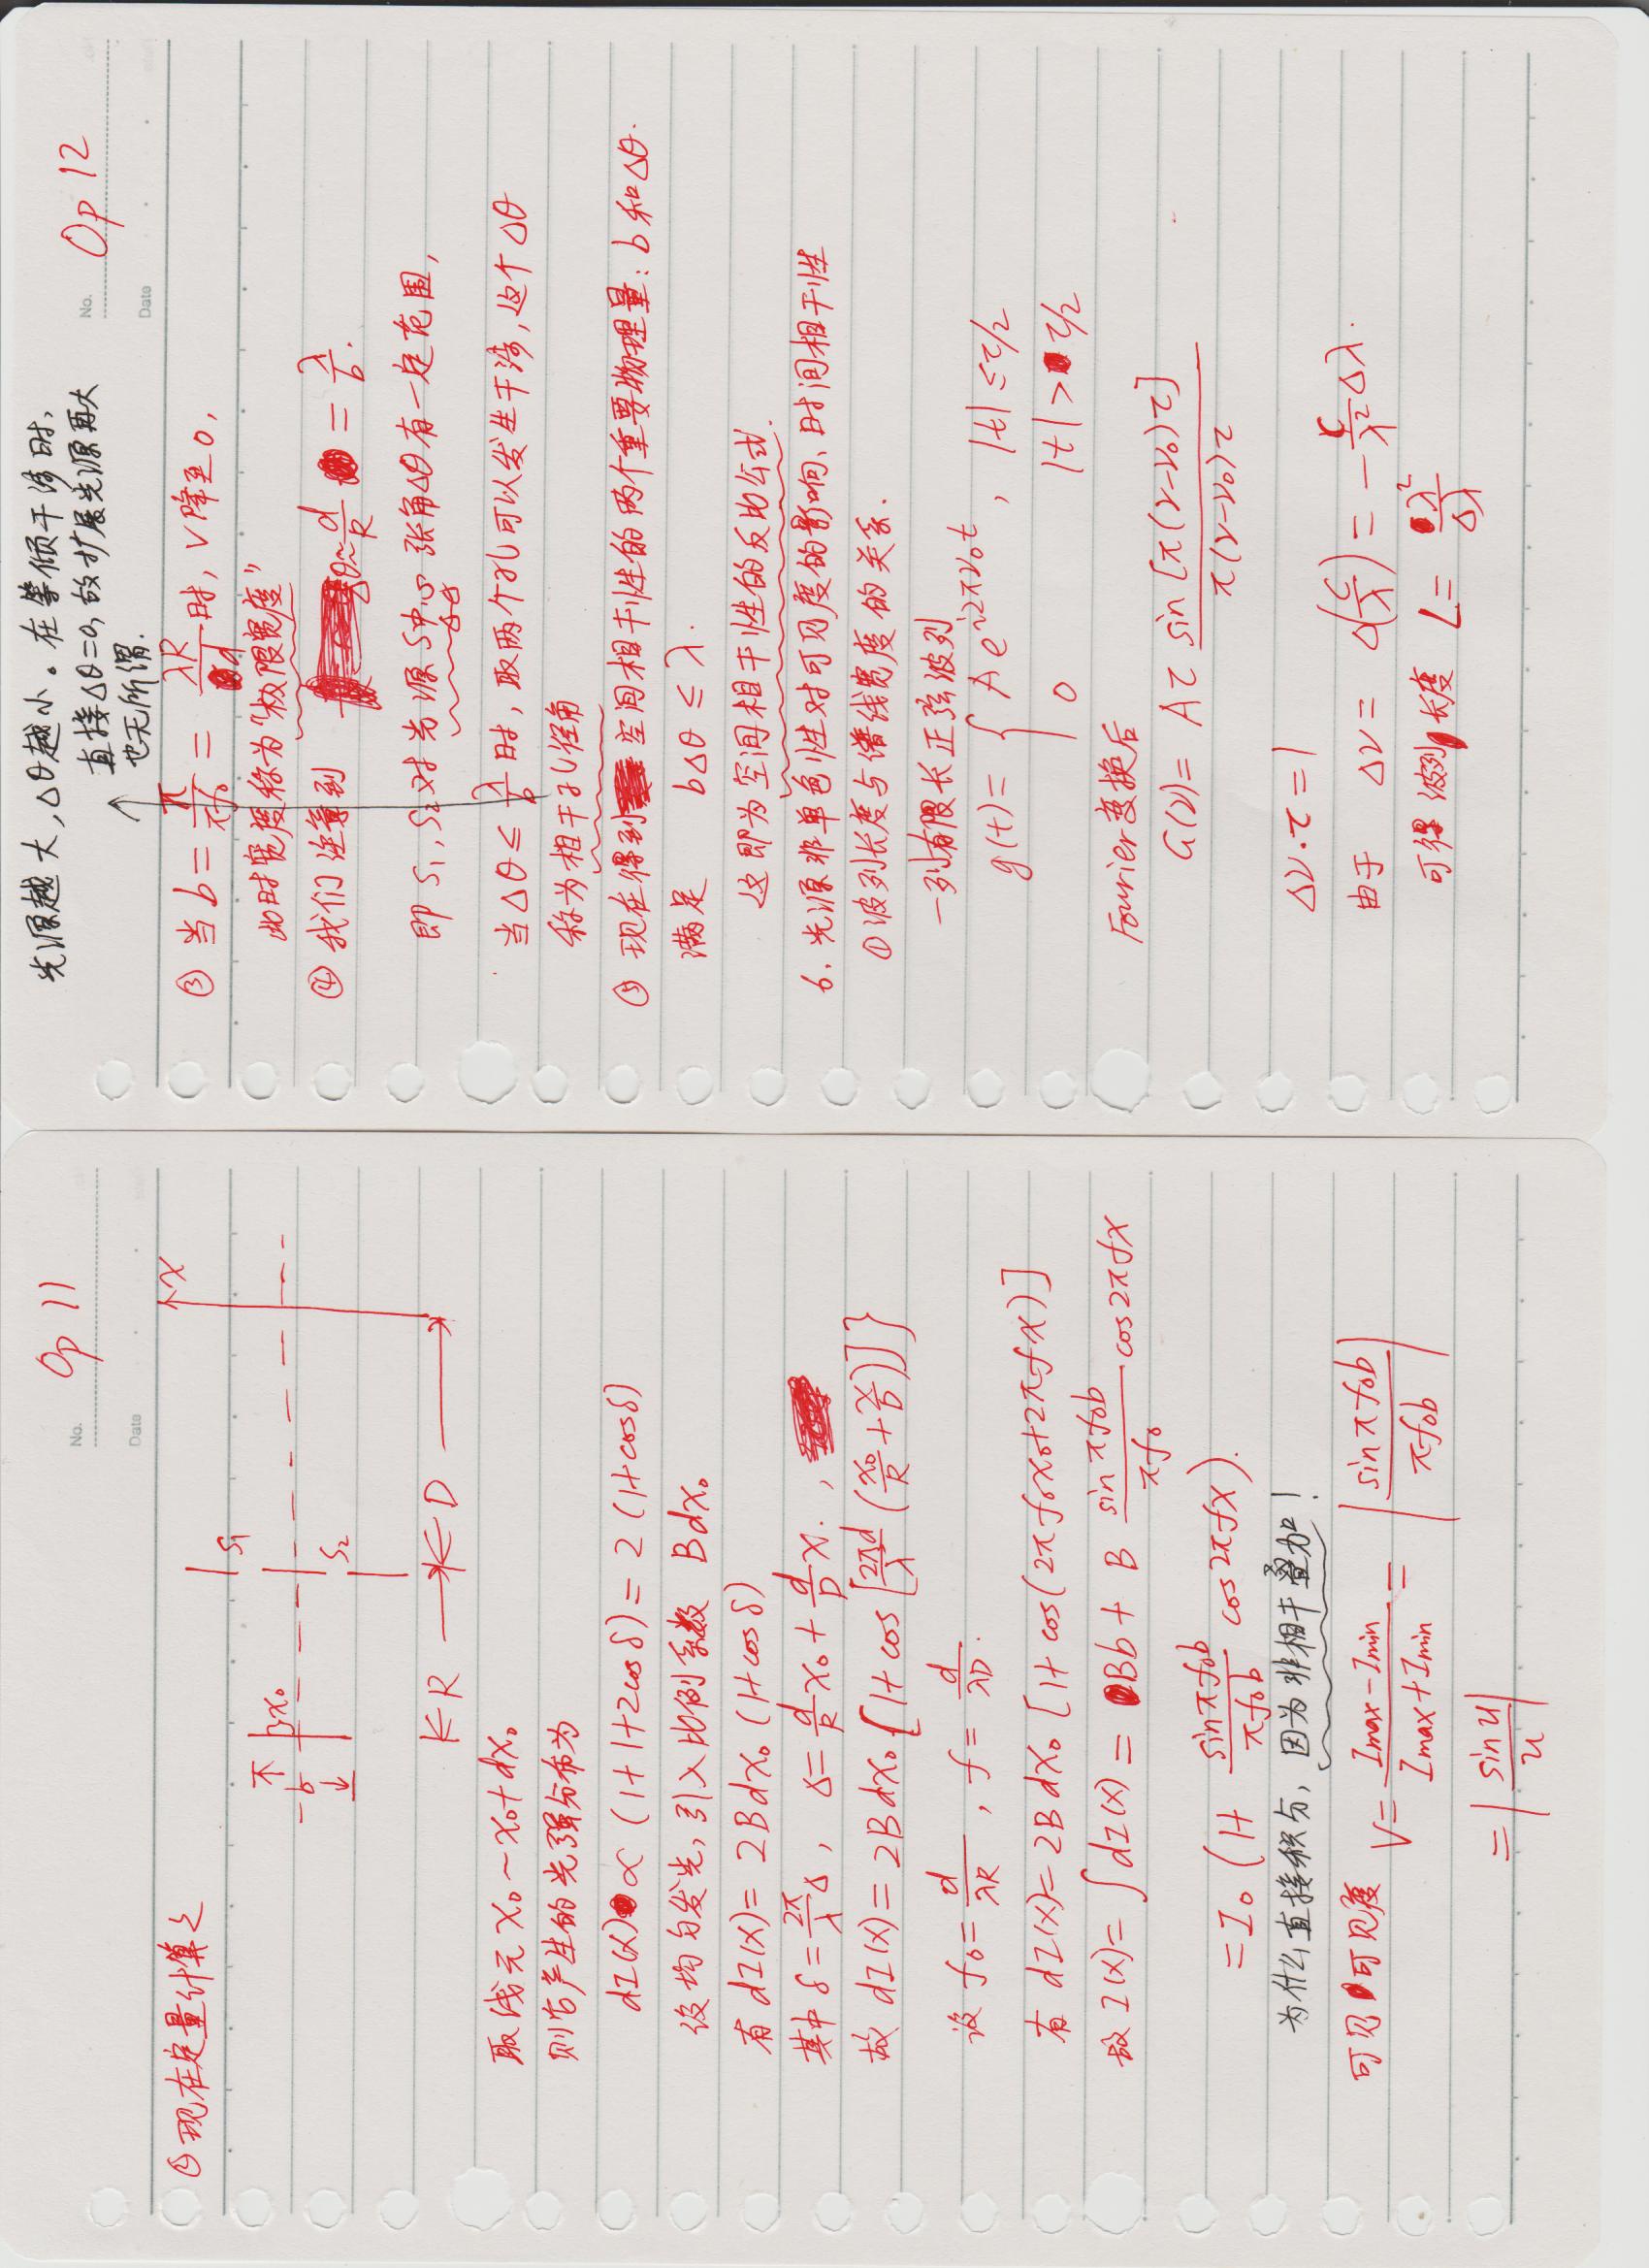 No. Op 11
Date
② 现在定量计算之
x
S₁
b
x₀
S₂
R
D
取线元 x₀ ~ x₀+dx₀
则它产生的光强分布为
dI(x) ∝ (1+1+2cosδ) = 2(1+cosδ)
设均匀发光, 引入比例系数 Bdx₀
有 dI(x) = 2Bdx₀ (1+cosδ)
其中 δ = 2π/λ Δ, Δ = d/R x₀ + d/D x.,
故 dI(x) = 2Bdx₀ {1+cos[2πd/λ (x₀/R + x/D)]}
设 f₀ = d/λR, f = d/λD.
有 dI(x) = 2Bdx₀ [1+cos(2πf₀x₀+2πfx)]
故 I(x) = ∫dI(x) = Bb + B sinπf₀b/πf₀ cos2πfx
= I₀ (1+ sinπf₀b/πf₀b cos2πfx).
为什么直接积分, 因为非相干叠加!
可见可见度 V = Imax-Imin/Imax+Imin = |sinπf₀b/πf₀b|
= |sin u/u|
光源越大, Δθ越小。在等倾干涉时,
直接Δθ=0, 故扩展光源再大
也无所谓.
No. Op 12
Date
③ 当 b = π/πf₀ = λR/d 时, V降至0,
此时宽度称为“极限宽度”
④ 我们注意到 Δθ ~ d/R = λ/b.
即 S₁, S₂对光源S中心张角Δθ有一定范围,
当 Δθ ≤ λ/b 时, 取两个孔可以发生干涉, 这个 Δθ
称为相干孔径角
⑤ 现在得到空间相干性的两个重要物理量: b 和 Δθ.
满足 bΔθ ≤ λ.
这即为空间相干性的反比公式.
6. 光源非单色性对可见度的影响、时间相干性
① 波列长度与谱线宽度的关系.
一列有限长正弦波列
g(t) = { A e^{i2πν₀t}, |t| ≤ τ/2
0 |t| > τ/2
Fourier变换后
G(ν) = Aτ sin[π(ν-ν₀)τ]/π(ν-ν₀)τ
Δν·τ = 1
由于 Δν = Δ(c/λ) = -c/λ² Δλ.
可得 波列长度 L = λ²/Δλ